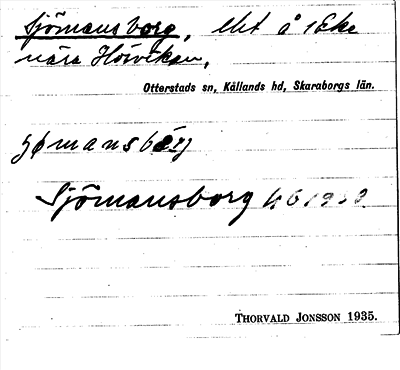 Sjömansborg, lht å 1 Eke
nära Hörviken,
Otterstads sn, Kållands hd, Skaraborgs län.
Sjömansborg
THORVALD JONSSON 1935.